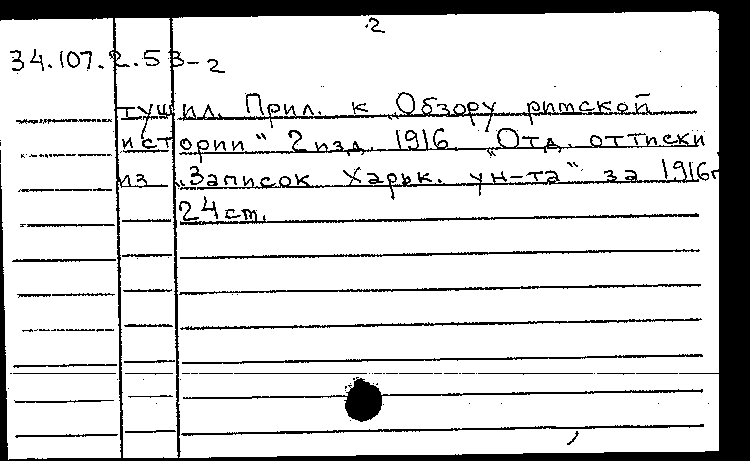 2
34.107.2.53-2
тущил. Прил. к „Обзору римской
истории" 2 изд. 1916. „Отд. оттиски
из „Записок Харьк. ун-та" за 1916г
24 cm.